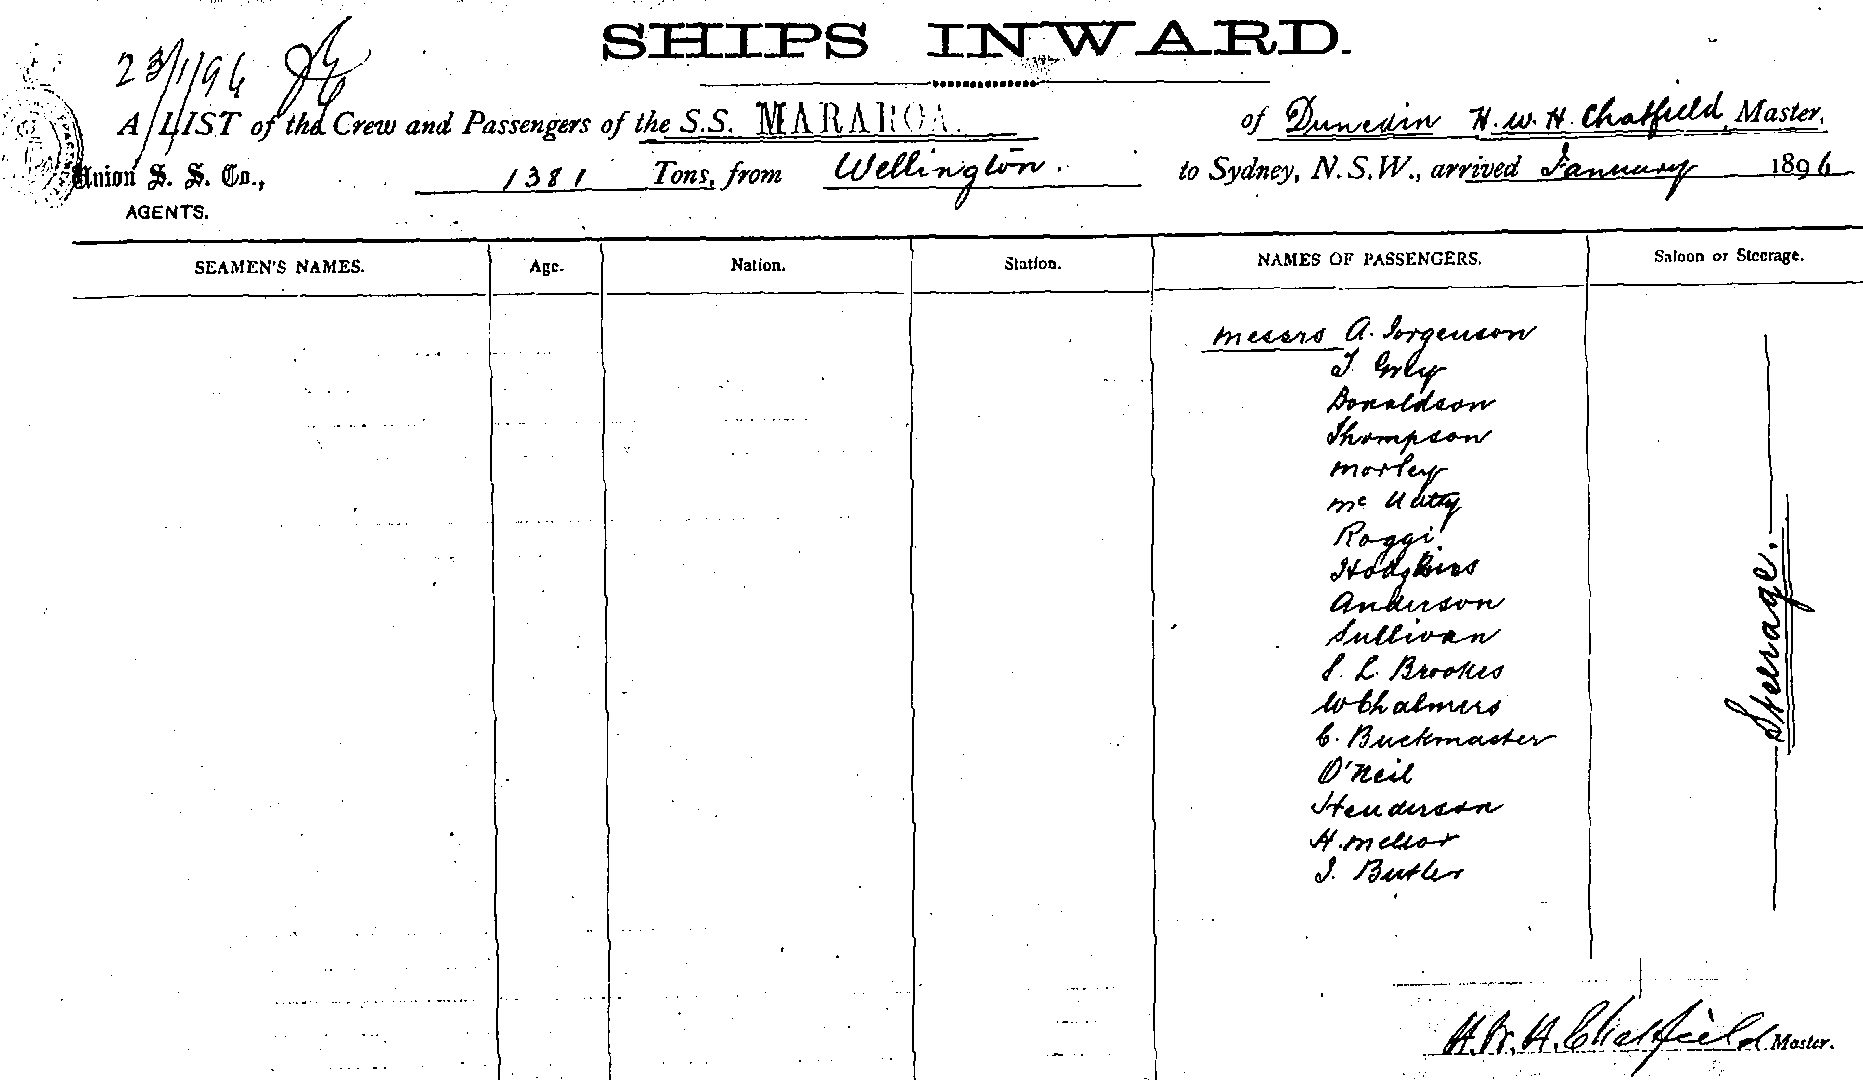 SHIPS INWARD.
23/1/96
A LIST of the Crew and Passengers of the S.S. MARAROA. of Dunedin H. W. H. Chatfield, Master,
Union S. S. Co., 1381 Tons, from Wellington. to Sydney, N.S.W., arrived January 1896
AGENTS.
SEAMEN'S NAMES. Age. Nation. Station. NAMES OF PASSENGERS. Saloon or Steerage.
Messrs A. Jorgenson
Donaldson
Thompson
Morley
Mc
Roggi
Hodgkins
Anderson
Sullivan
S. L. Brookes
W Chalmers
C. Buckmaster
O'Neil
Henderson
H. Mellor
J. Butler
Steerage.
H. W. H. Chatfield Master.